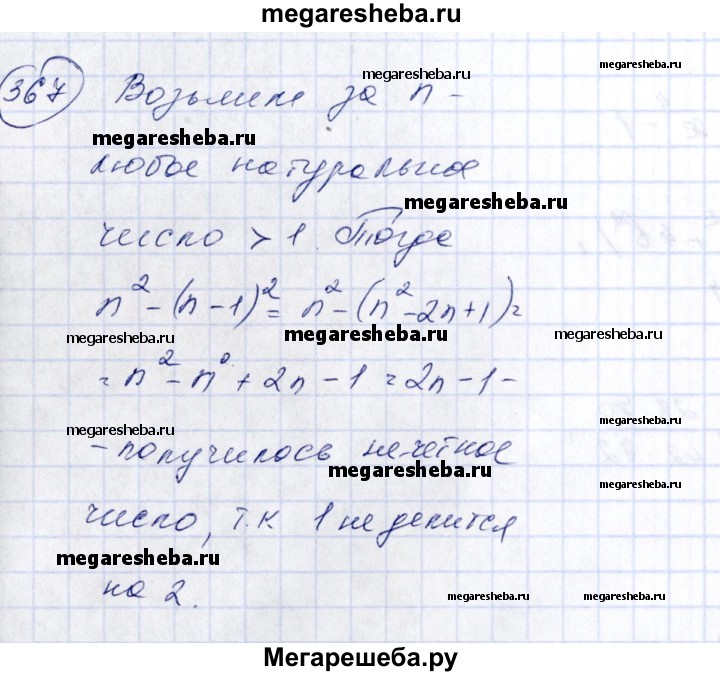 megaresheba.ru
367 Возьмем за n -
megaresheba.ru
megaresheba.ru
megaresheba.ru
любое натуральное
megaresheba.ru
число > 1. Тогда
megaresheba.ru
n² - (n - 1)² = n² - (n² - 2n + 1) =
megaresheba.ru
megaresheba.ru
megaresheba.ru
= n² - n² + 2n - 1 = 2n - 1 -
megaresheba.ru
megaresheba.ru
- получилось нечетное
megaresheba.ru
megaresheba.ru
число, т.к. 1 не делится
megaresheba.ru
на 2.
megaresheba.ru
megaresheba.ru
Мегарешеба.ру